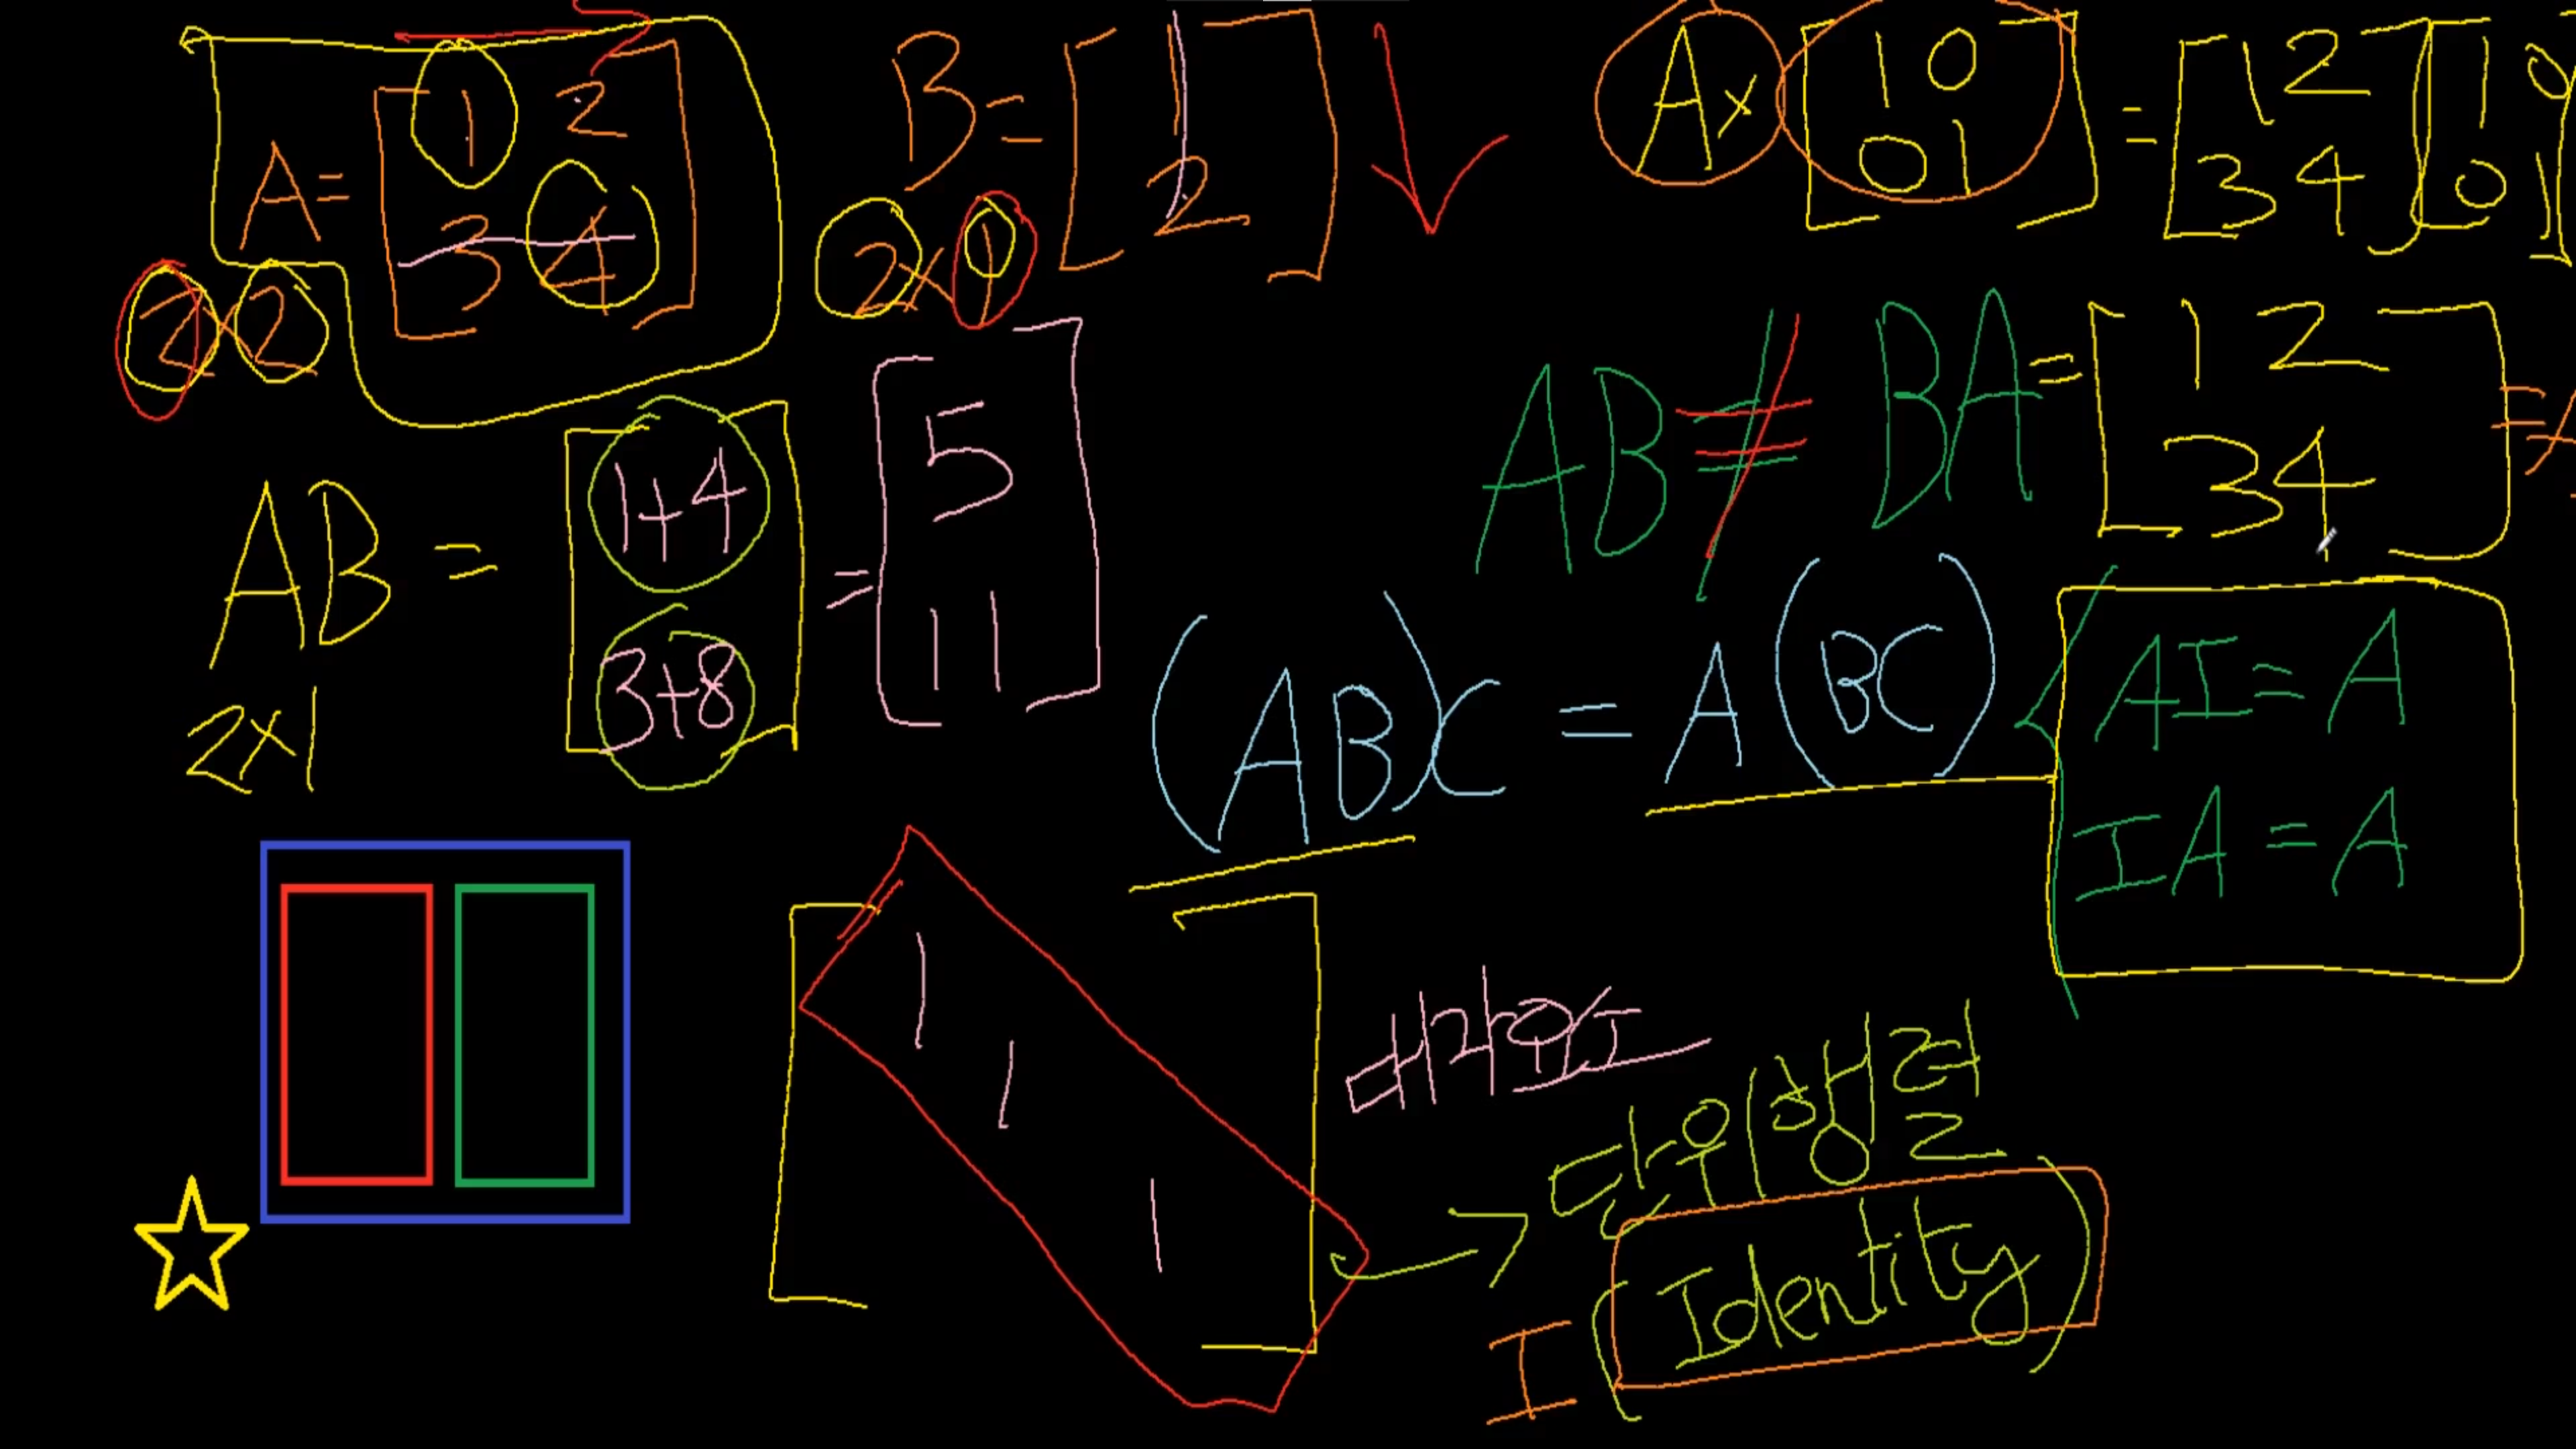 A = [1 2
3 4]
2×2
B = [1
2]
2×1
A× [1 0
0 1] = [1 2
3 4] [1 0
0 1]
= [1 2
3 4] =
AB = [1+4
3+8] = [5
11]
2×1
AB ≠ BA
(AB)C = A(BC)
AI = A
IA = A
1
1
1
대각요소
→ 단위행렬
I (Identity)